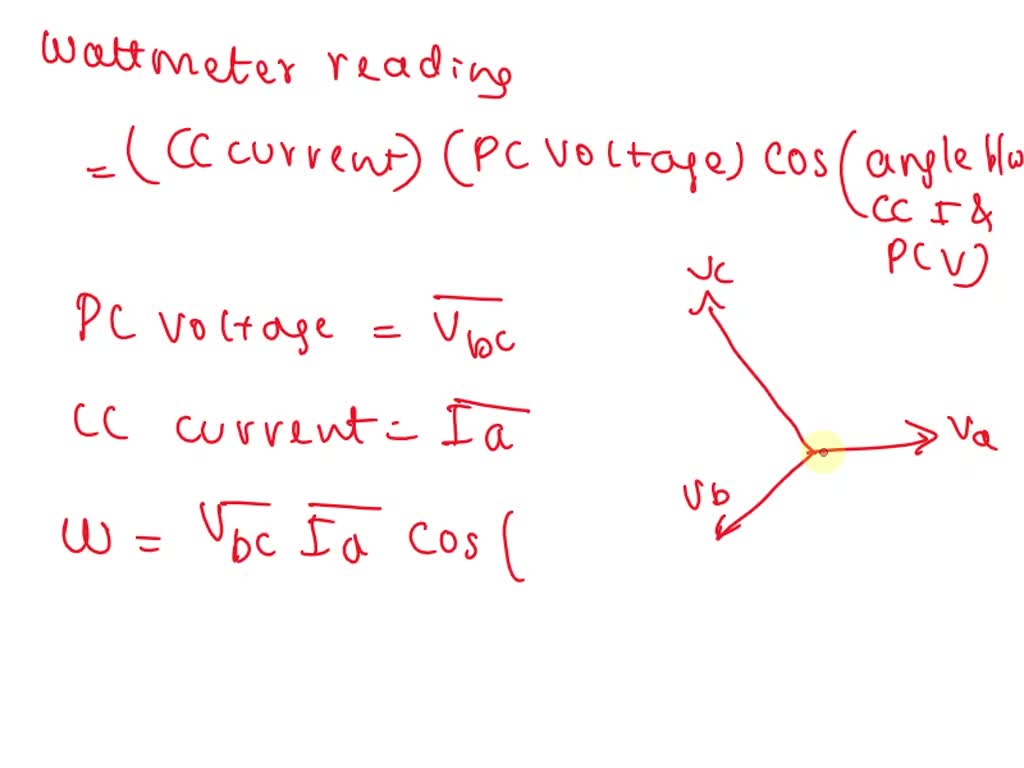 Wattmeter reading
= (CC current) (PC Voltage) cos (angle b/w
CC I &
PC V)
PC Voltage = V̅b̅c̅
CC current = I̅a̅
W = V̅b̅c̅ I̅a̅ cos (
Vc
Va
Vb